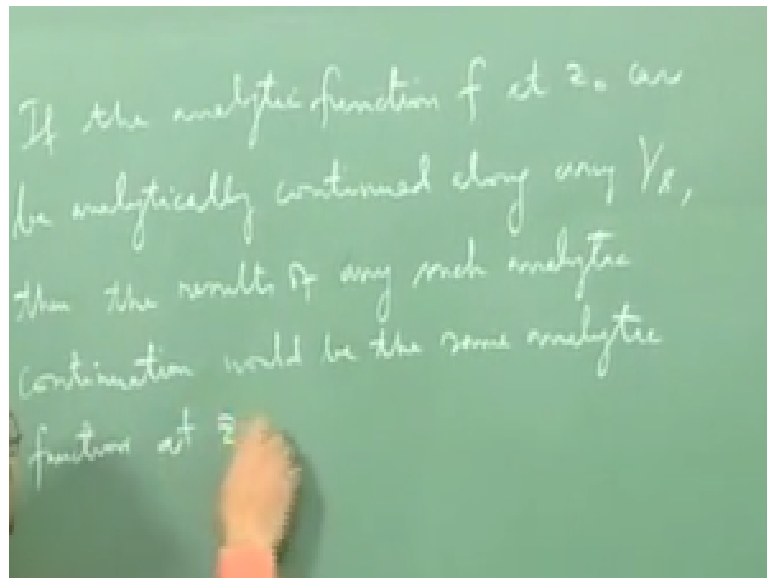 If the analytic function f at z₀ can
be analytically continued along any γ
then the results of any such analytic
continuation would be the same analytic
function at